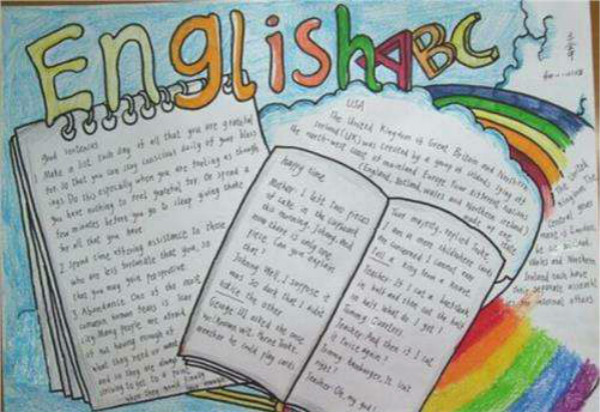 English ABC
good sentences
1 Make a list each day of all that you are grateful
for. So that you can stay conscious daily of your bless
ings. Do this especially when you are feeling as though
you have nothing to feel grateful for. Or spend a
few minutes before you go to sleep giving thanks
for all that you have
2. Spend time offering assistance to those
who are less fortunate than you, so
that you may gain perspective.
3. Abundance One of the most
common human fears is scar
city Many people are afraid
of not having enough of
what they need or want
and so they are always
striving to get to a point
when they would finally
USA
The United Kingdom of Great Britain and Northern
Ireland (UK) was created by a group of islands lying off
the north-west coast of mainland Europe. Four different nations
(England, Scotland, Wales and Northern Ireland)
made up one
happy time
Mother: I left two pieces
of cake in the cupboard
this morning, Johnny, and
now there is only one
piece. Can you explain
that?
Johnny: Well, I suppose it
was so dark that I didn't
notice the other
George III asked the once
man. Parne looks
member he could play cards
Your majesty, replied Tooke,
I am in more
are concerned I cannot even
tell a king from a knave.
Teacher: If I cut a beefsteak
in half and then cut the half
in half. What do I get?
Tommy: Quarters
Teacher: And then if I cut
it twice again?
Tommy: Hamburger,
Teacher: Oh, my god!
the United
Kingdom
central
is London.
Wales and Northern
Ireland each have
their separate
for internal affairs.